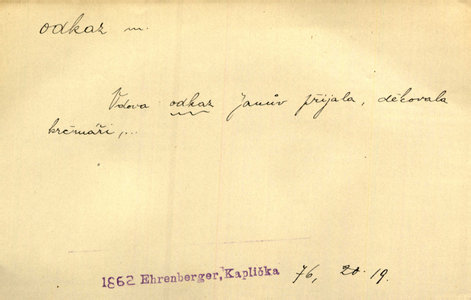 odkaz m.
Vdova odkaz Janův přijala, děkovala
krčmáři,...
1862 Ehrenberger, Kaplička 76, 20 19.